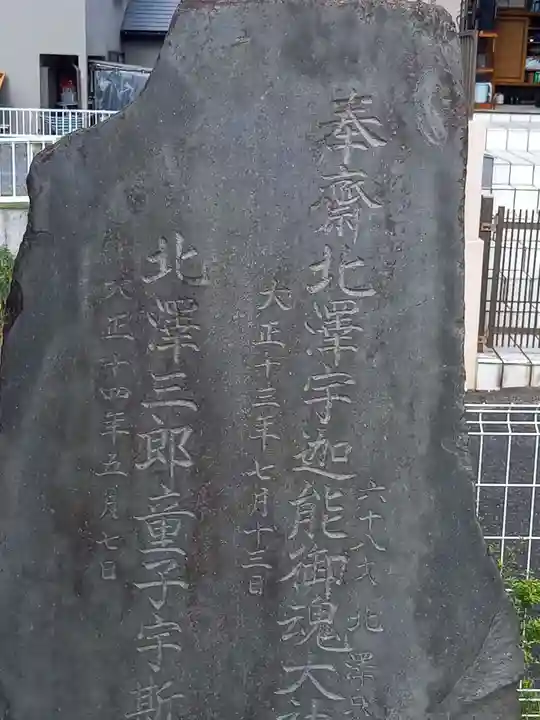 奉齋北澤宇迦能御魂大
六十八才 北澤
大正十三年七月十三日
北澤三郎童子宇斯
大正十四年五月七日